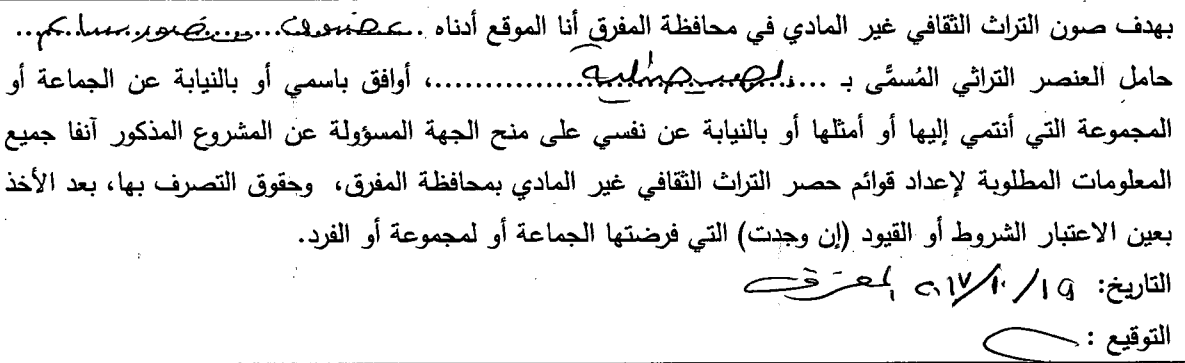 بهدف صون التراث الثقافي غير المادي في محافظة المفرق أنا الموقع أدناه ....................
حامل العنصر التراثي المُسمَّى بـ ....................، أوافق باسمي أو بالنيابة عن الجماعة أو
المجموعة التي أنتمي إليها أو أمثلها أو بالنيابة عن نفسي على منح الجهة المسؤولة عن المشروع المذكور آنفا جميع
المعلومات المطلوبة لإعداد قوائم حصر التراث الثقافي غير المادي بمحافظة المفرق، وحقوق التصرف بها، بعد الأخذ
بعين الاعتبار الشروط أو القيود (إن وجدت) التي فرضتها الجماعة أو لمجموعة أو الفرد.
التاريخ: ١٩/١٠/٢٠١٧ المفرق
التوقيع :